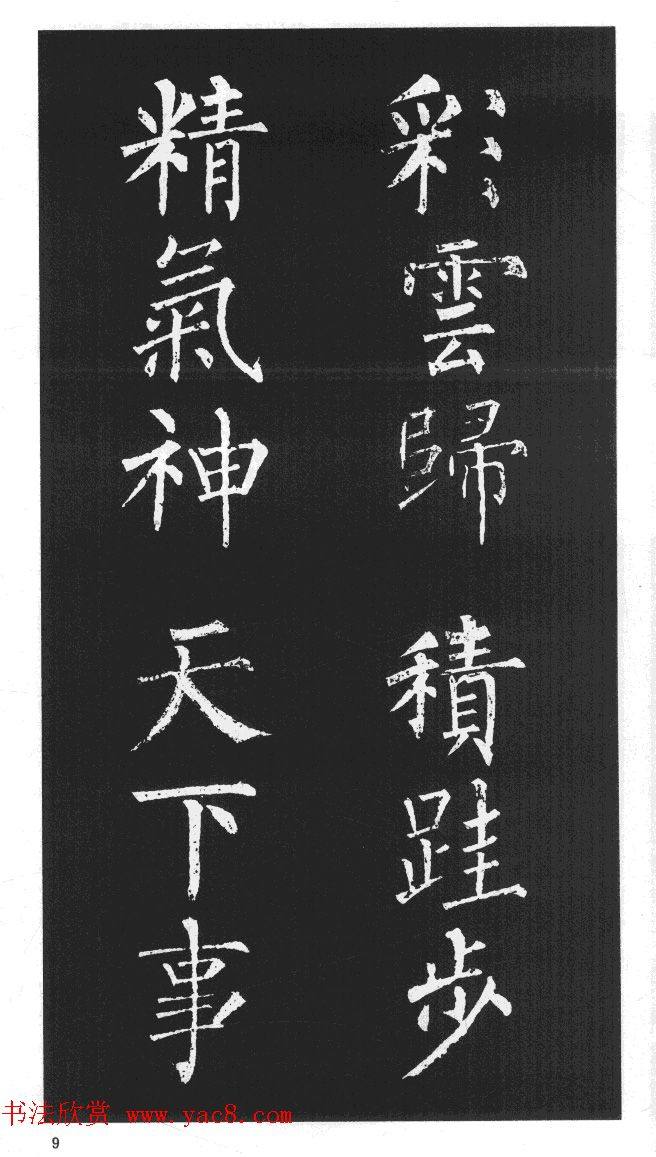 彩雲歸 積跬步
精氣神 天下事
书法欣赏 www.yac8.com
9